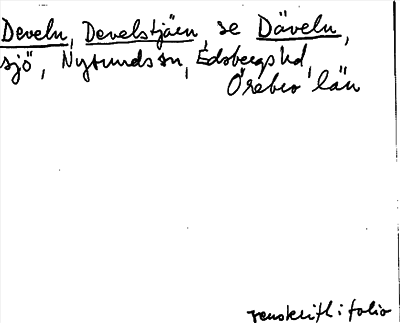 Develn, Develstjäen, se Däveln,
sjö, Nysundssn, Edsbergs hd,
Örebro län
renskrift i folio